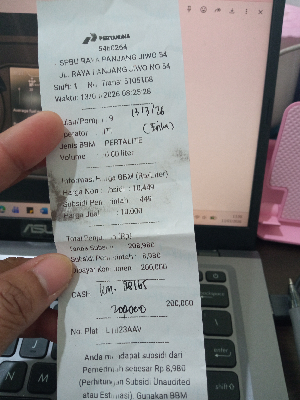 PERTAMINA
5460264
SPBU RAYA PANJANG JIWO 54
JL. RAYA PANJANG JIWO NO 54
Shift: 1 No. Trans: 5105108
Waktu: 13/03/2026 08:28:28
9 13/3/26
Operator
Jenis BBM PERTALITE
Volume liter
Informasi Harga BBM (Rp/liter)
Harga Non Subsidi : 10,449
Subsidi Pemerintah : 449
Harga Jual : 10,000
Total Penjualan (Rp)
Tanpa Subsidi 208,980
Subsidi Pemerintah : 8,980
Dibayar Konsumen 200,000
CASH 200,000
200000
No. Plat L 1123AAV
Anda mendapat subsidi dari
Pemerintah sebesar Rp 8,980
(Perhitungan Subsidi Unaudited
atau Estimasi). Gunakan BBM